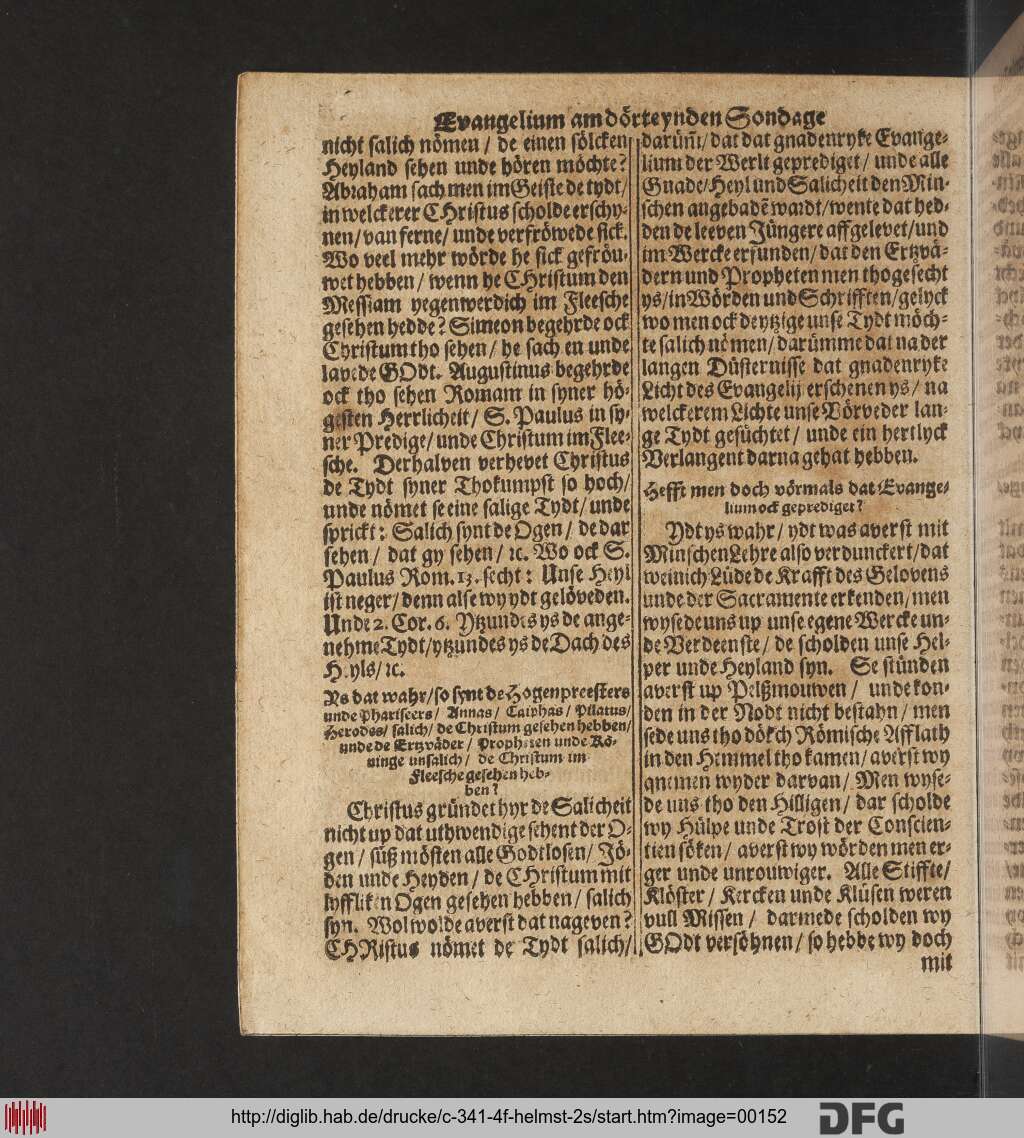 Evangelium am dörteynden Sondage
nicht salich nömen / de einen sölcken
Heyland sehen unde hören möchte?
Abraham sach men im Geiste de tydt /
in welckerer CHristus scholde erschy-
nen / van ferne / unde verfröwede sick.
Wo veel mehr wörde he sick gefröu-
wet hebben / wenn he CHristum den
Messiam yegenwerdich im Fleesche
gesehen hedde? Simeon begehrde ock
Christum tho sehen / he sach en unde
lavede GOdt. Augustinus begehrde
ock tho sehen Romam in syner hö-
gesten Herrlicheit / S. Paulus in sy-
ner Predige / unde Christum im Flee-
sche. Derhalven verhevet Christus
de Tydt syner Thokumpst so hoch /
unde nömet se eine salige Tydt / unde
sprickt: Salich synt de Ogen / de dar
sehen / dat gy sehen / ꝛc. Wo ock S.
Paulus Rom. 13. secht: Unse Heyl
ist neger / denn alse wy ydt gelöveden.
Unde 2. Cor. 6. Ytzundes ys de ange-
nehme Tydt / ytzundes ys de Dach des
Heyls / ꝛc.
Ys dat wahr / so synt de Hogenpreesters
unde Phariseers / Annas / Caiphas / Pilatus /
Herodes / salich / de Christum gesehen hebben /
unde de Ertzväder / Propheten unde Kö-
ninge unsalich / de Christum im
Fleesche gesehen heb-
ben?
Christus gründet hyr de Salicheit
nicht up dat uthwendige sehent der O-
gen / süß mösten alle Godtlosen / Jö-
den unde Heyden / de CHristum mit
lyffliken Ogen gesehen hebben / salich
syn. Wol wolde averst dat nageven?
CHRistus nömet de Tydt salich /
darüm̃ / dat dat gnadenryke Evange-
lium der Werlt geprediget / unde alle
Gnade / Heyl und Salicheit den Min-
schen angebadẽ wardt / wente dat hed-
den de leeven Jüngere affgelevet / und
im Wercke erfunden / dat den Ertzvä-
dern und Propheten men thogesecht
ys / in Wörden und Schrifften / gelyck
wo men ock de ytzige unse Tydt möch-
te salich nömen / darümme dat na der
langen Düsternisse dat gnadenryke
Licht des Evangelij erschenen ys / na
welckerem Lichte unse Vörveder lan-
ge Tydt gesüchtet / unde ein hertlyck
Verlangent darna gehat hebben.
Hefft men doch vörmals dat Evange-
lium ock geprediget?
Ydt ys wahr / ydt was averst mit
Minschen Lehre also verdunckert / dat
weinich Lüde de Krafft des Gelovens
unde der Sacramente erkenden / men
wysede uns up unse egene Wercke un-
de Verdeenste / de scholden unse Hel-
per unde Heyland syn. Se stünden
averst up Peltzmouwen / unde kon-
den in der Nodt nicht bestahn / men
sede uns tho dörch Römische Afflath
in den Hemmel tho kamen / averst wy
quemen wyder darvan / Men wyse-
de uns tho den Hilligen / dar scholde
wy Hülpe unde Trost der Conscien-
tien söken / averst wy wörden men er-
ger unde unrouwiger. Alle Stiffte /
Klöster / Kercken unde Klüsen weren
vull Missen / darmede scholden wy
GOdt versöhnen / so hebbe wy doch
mit
http://diglib.hab.de/drucke/c-341-4f-helmst-2s/start.htm?image=00152
DFG